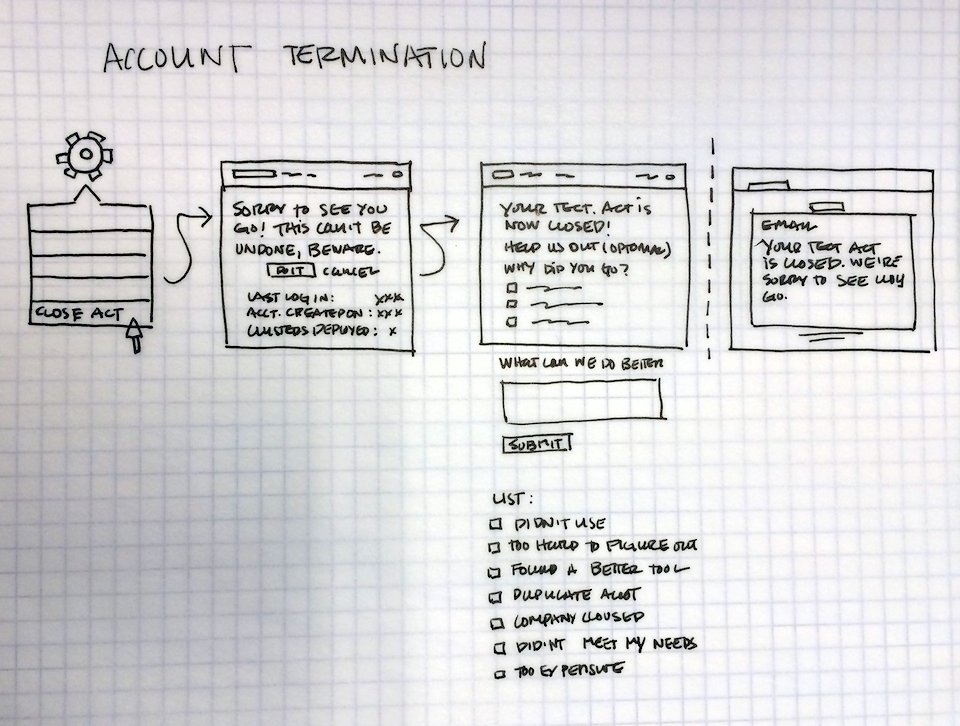 ACCOUNT TERMINATION
CLOSE ACT
SORRY TO SEE YOU
GO! THIS CAN'T BE
UNDONE, BEWARE.
DO IT CANCEL
LAST LOG IN: XXX
ACCT. CREATED ON: XXX
CLUSTERS DEPLOYED: X
YOUR TECT. ACT IS
NOW CLOSED!
HELP US OUT (OPTIONAL)
WHY DID YOU GO?
WHAT CAN WE DO BETTER
SUBMIT
EMAIL
YOUR TECT ACT
IS CLOSED. WE'RE
SORRY TO SEE YOU
GO.
LIST:
DIDN'T USE
TOO HARD TO FIGURE OUT
FOUND A BETTER TOOL
DUPLICATE ACCT
COMPANY CLOUSED
DIDINT MEET MY NEEDS
TOO EXPENSIVE